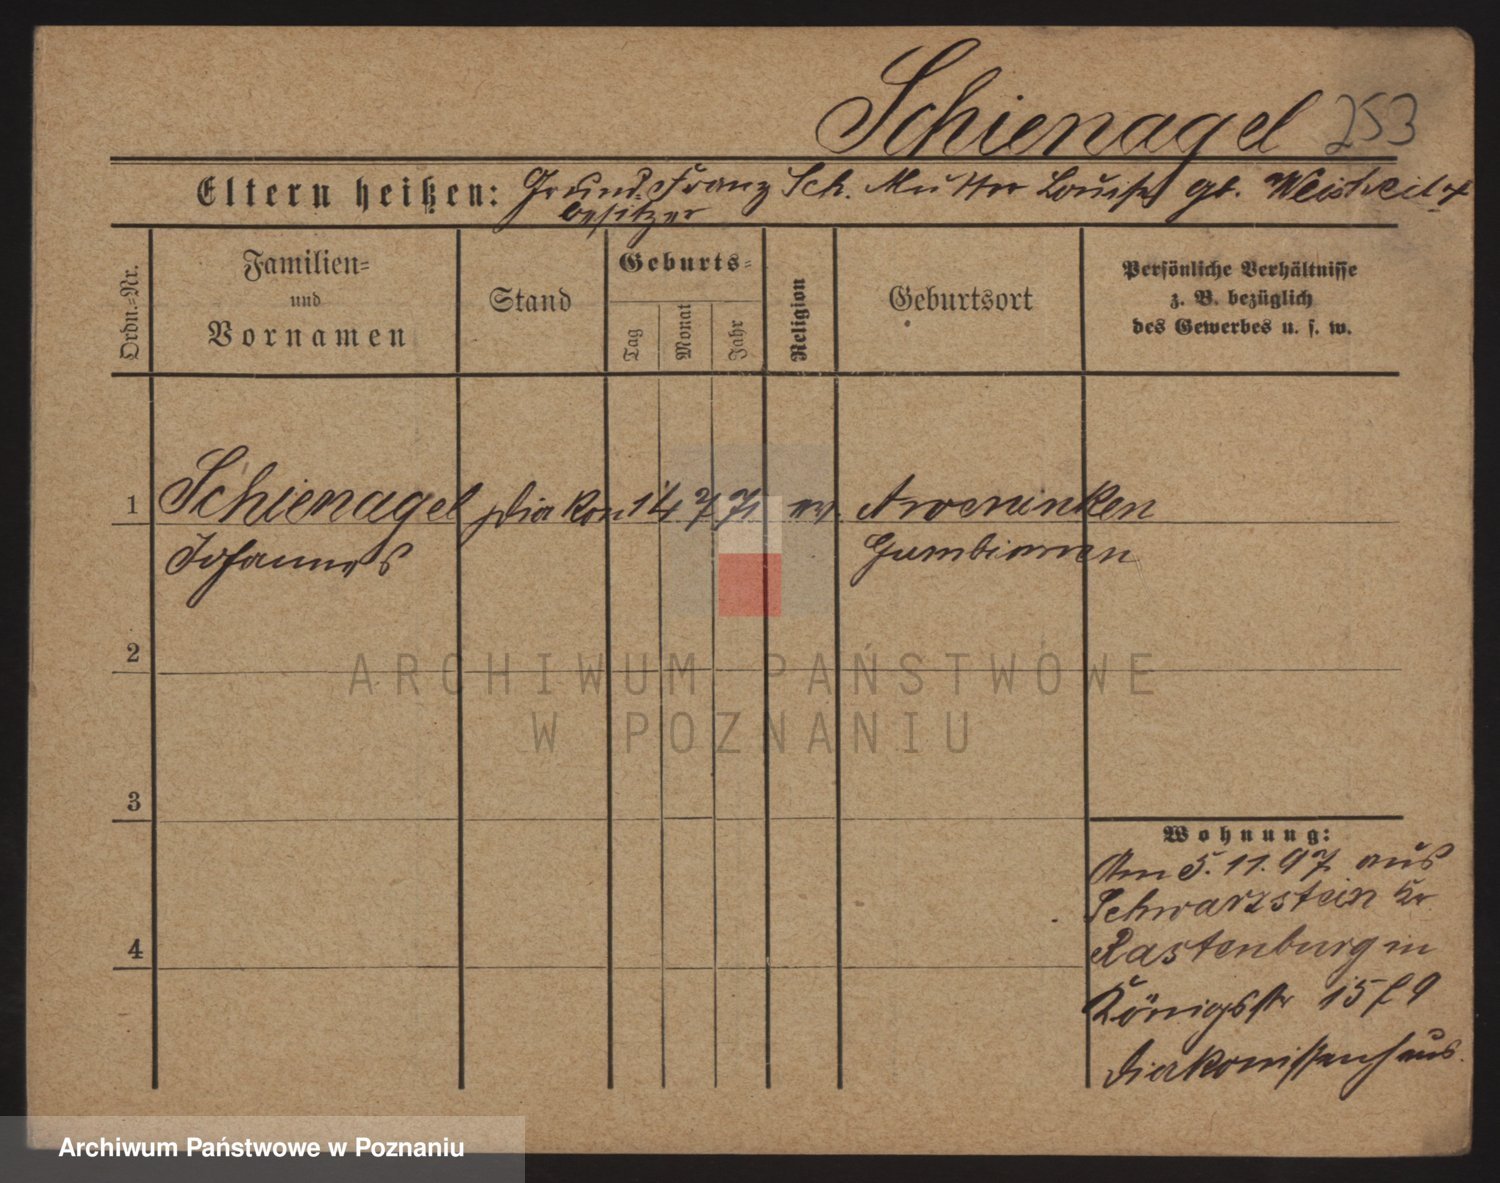 Schienagel 253
Eltern heißen: Grund- Franz Sch. Mutter Louise gb.
besitzer
Ordn.-Nr.
Familien-
und
Vornamen
Stand
Geburts-
Tag
Monat
Jahr
Religion
Geburtsort
Persönliche Verhältnisse
z. B. bezüglich
des Gewerbes u. s. w.
1 Schienagel Diakon 14 7 71 ev.
Johannes Gumbinnen
2
3
4
Wohnung:
Am 5.11.97 aus
Schwarzstein Kr
Rastenburg in
Königsstr 15
Diakonissenhaus.
ARCHIWUM PAŃSTWOWE
W POZNANIU
Archiwum Państwowe w Poznaniu